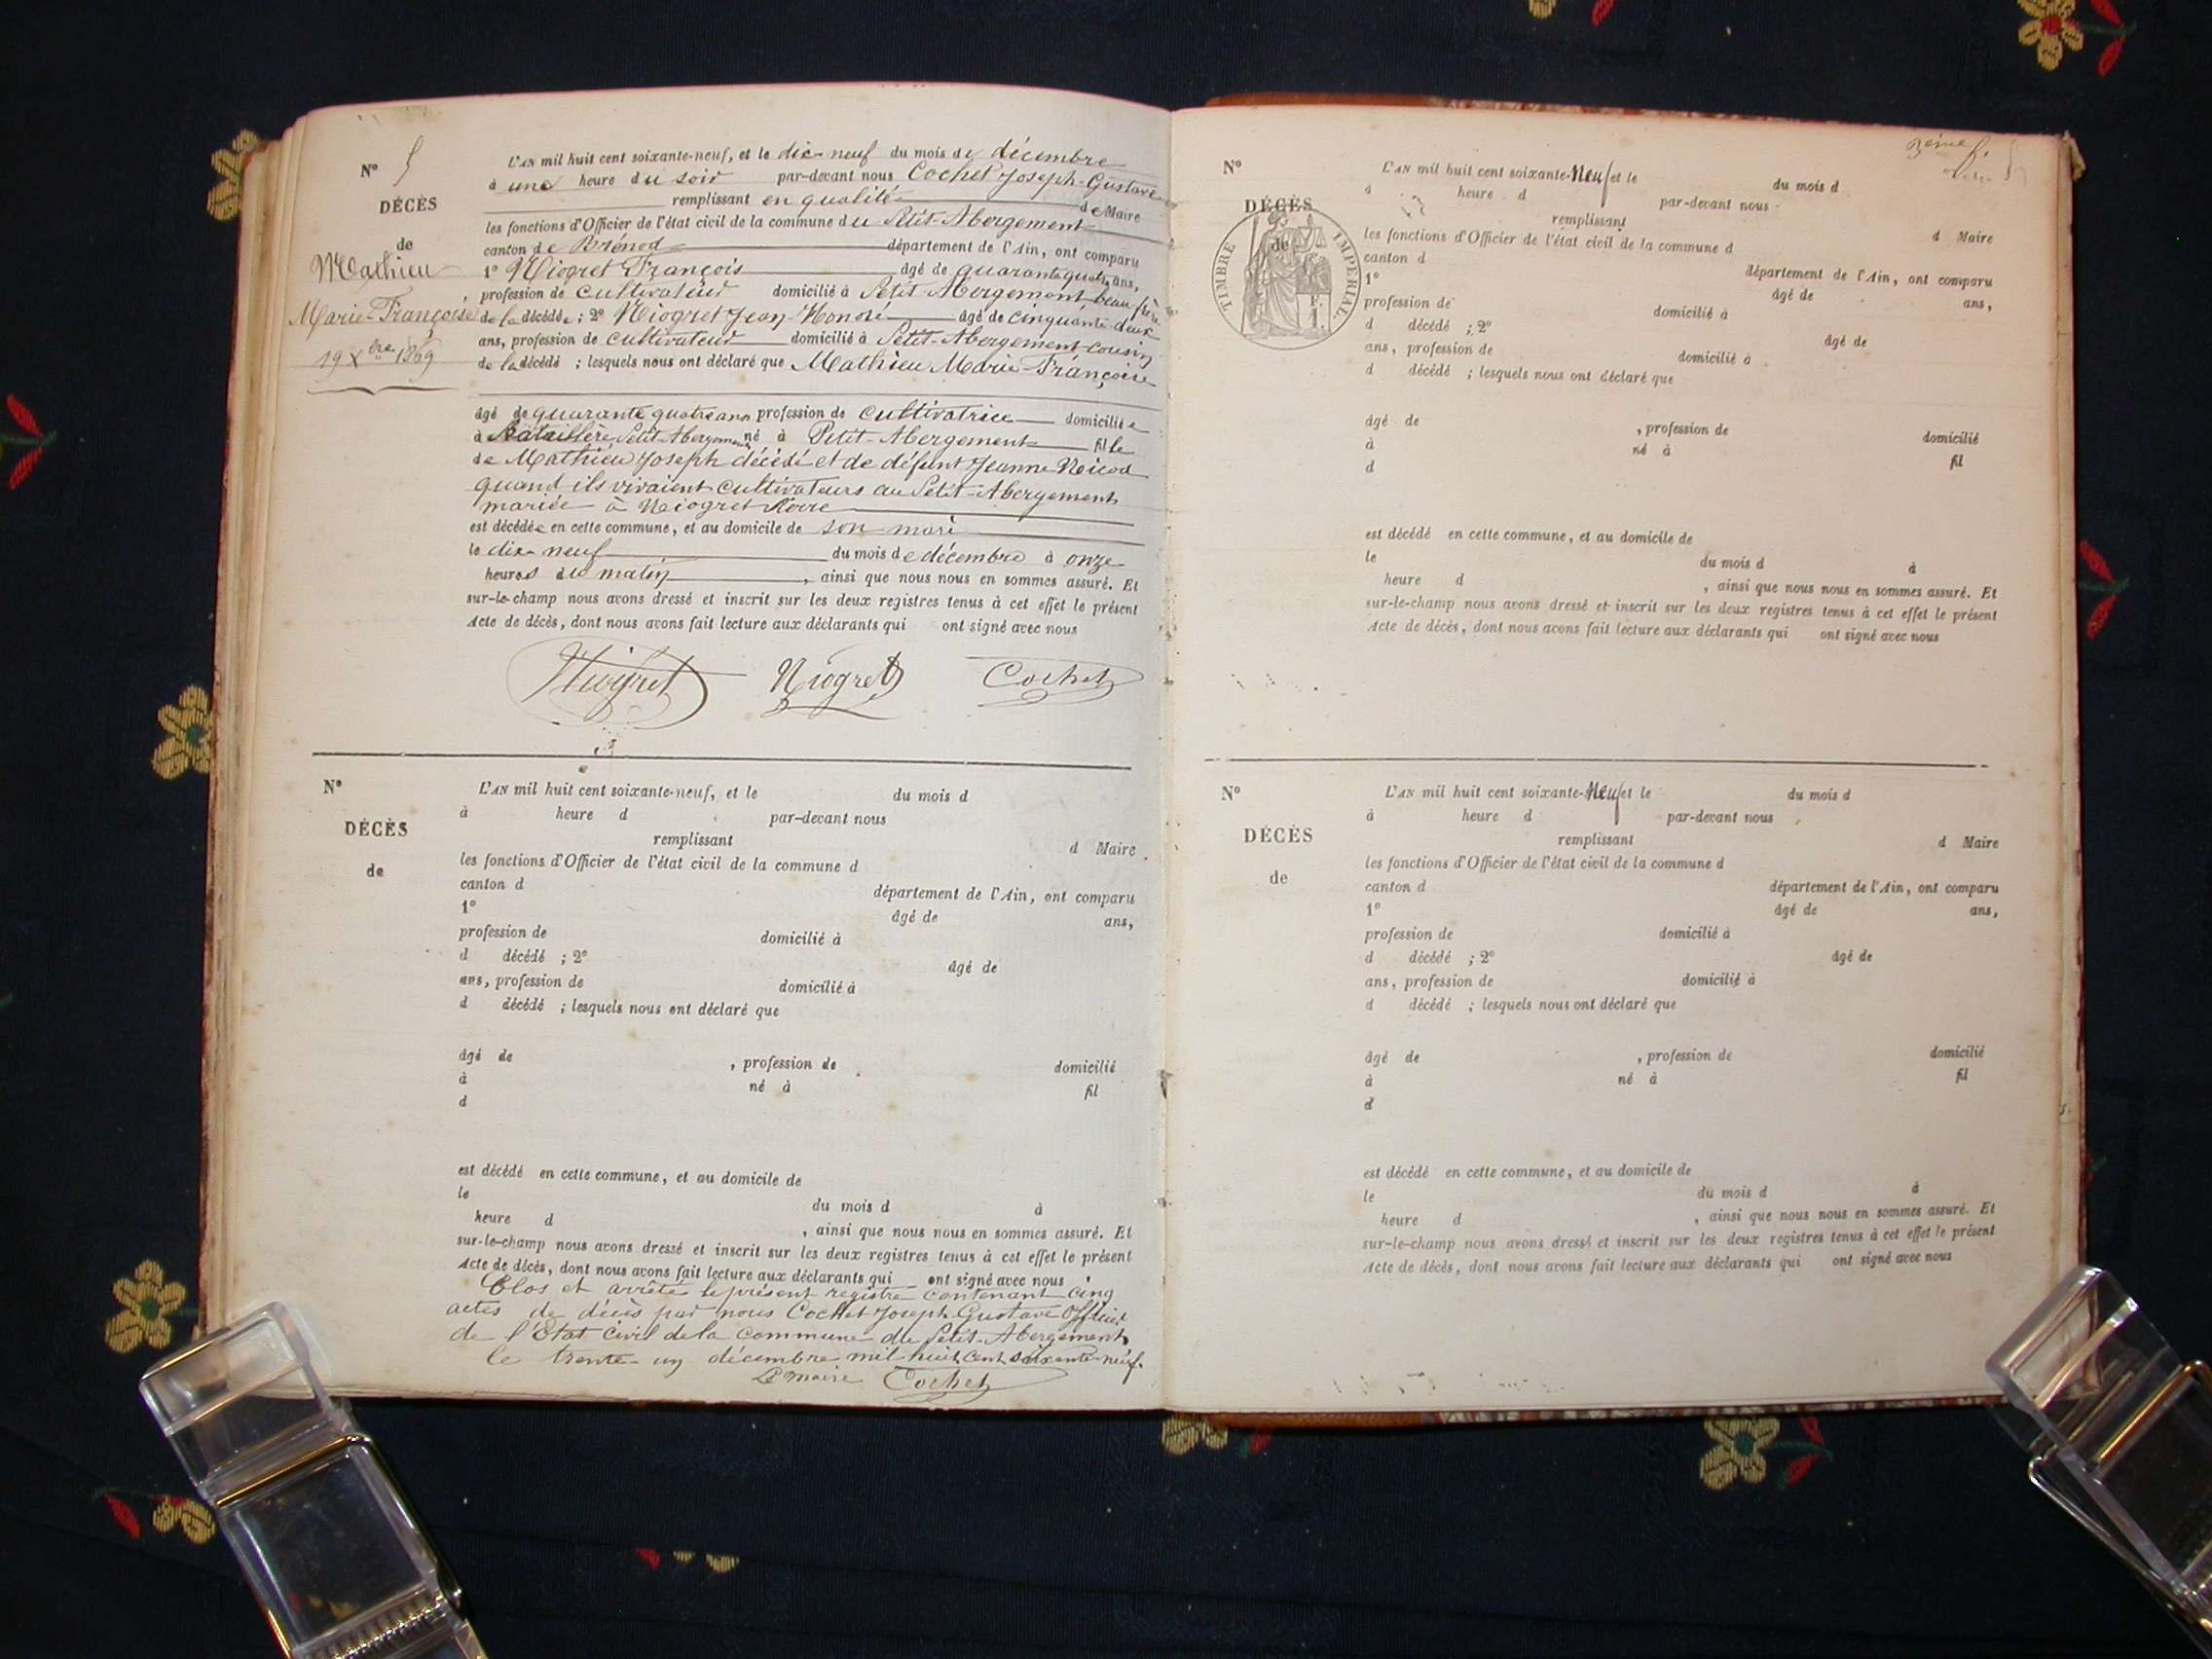 N° 5
DÉCÈS
de
Mathieu
Marie-Françoise
19 Xbre 1869
L'AN mil huit cent soixante-neuf, et le dix-neuf du mois de décembre
à une heure du soir par-devant nous Cochet Joseph-Gustave
remplissant en qualité de Maire
les fonctions d'Officier de l'état civil de la commune du Petit-Abergement
canton de Brénod département de l'Ain, ont comparu
1° Niogret François âgé de quarante quatre ans,
profession de cultivateur domicilié à Petit Abergement beau-frère
de la décédée ; 2° Niogret Jean-Honoré âgé de cinquante-deux
ans, profession de cultivateur domicilié à Petit-Abergement cousin
de la décédé ; lesquels nous ont déclaré que Mathieu Marie-Françoise
âgé de quarante quatre ans profession de cultivatrice domiciliée
à Petit Abergement né à Petit-Abergement fille
de Mathieu Joseph décédé et de défunt Jeanne Nicod
quand ils vivaient cultivateurs au Petit-Abergement
mariée à Niogret Pierre
est décédée en cette commune, et au domicile de son mari
le dix-neuf du mois de décembre à onze
heures du matin, ainsi que nous nous en sommes assuré. Et
sur-le-champ nous avons dressé et inscrit sur les deux registres tenus à cet effet le présent
Acte de décès, dont nous avons fait lecture aux déclarants qui ont signé avec nous
Niogret Niogret Cochet
N°
DÉCÈS
de
L'AN mil huit cent soixante-neuf, et le du mois d
à heure d par-devant nous
remplissant d Maire
les fonctions d'Officier de l'état civil de la commune d
canton d département de l'Ain, ont comparu
1° âgé de ans,
profession de domicilié à
d décédé ; 2° âgé de
ans, profession de domicilié à
d décédé ; lesquels nous ont déclaré que
âgé de , profession de domicilié
à né à fil
d
est décédé en cette commune, et au domicile de
le du mois d à
heure d , ainsi que nous nous en sommes assuré. Et
sur-le-champ nous avons dressé et inscrit sur les deux registres tenus à cet effet le présent
Acte de décès, dont nous avons fait lecture aux déclarants qui ont signé avec nous
Clos et arrêté le présent registre contenant cinq
actes de décès par nous Cochet Joseph Gustave Officier
de l'Etat civil de la commune du Petit-Abergement
le trente-un décembre mil huit cent soixante-neuf.
Le maire Cochet
3ème f.
N°
DÉCÈS
de
TIMBRE IMPERIAL
1 F.
L'AN mil huit cent soixante-Neuf et le du mois d
à heure d par-devant nous
remplissant d Maire
les fonctions d'Officier de l'état civil de la commune d
canton d département de l'Ain, ont comparu
1° âgé de ans,
profession de domicilié à
d décédé ; 2° âgé de
ans, profession de domicilié à
d décédé ; lesquels nous ont déclaré que
âgé de , profession de domicilié
à né à fil
d
est décédé en cette commune, et au domicile de
le du mois d à
heure d , ainsi que nous nous en sommes assuré. Et
sur-le-champ nous avons dressé et inscrit sur les deux registres tenus à cet effet le présent
Acte de décès, dont nous avons fait lecture aux déclarants qui ont signé avec nous
N°
DÉCÈS
de
L'AN mil huit cent soixante-Neuf et le du mois d
à heure d par-devant nous
remplissant d Maire
les fonctions d'Officier de l'état civil de la commune d
canton d département de l'Ain, ont comparu
1° âgé de ans,
profession de domicilié à
d décédé ; 2° âgé de
ans, profession de domicilié à
d décédé ; lesquels nous ont déclaré que
âgé de , profession de domicilié
à né à fil
d
est décédé en cette commune, et au domicile de
le du mois d à
heure d , ainsi que nous nous en sommes assuré. Et
sur-le-champ nous avons dressé et inscrit sur les deux registres tenus à cet effet le présent
Acte de décès, dont nous avons fait lecture aux déclarants qui ont signé avec nous